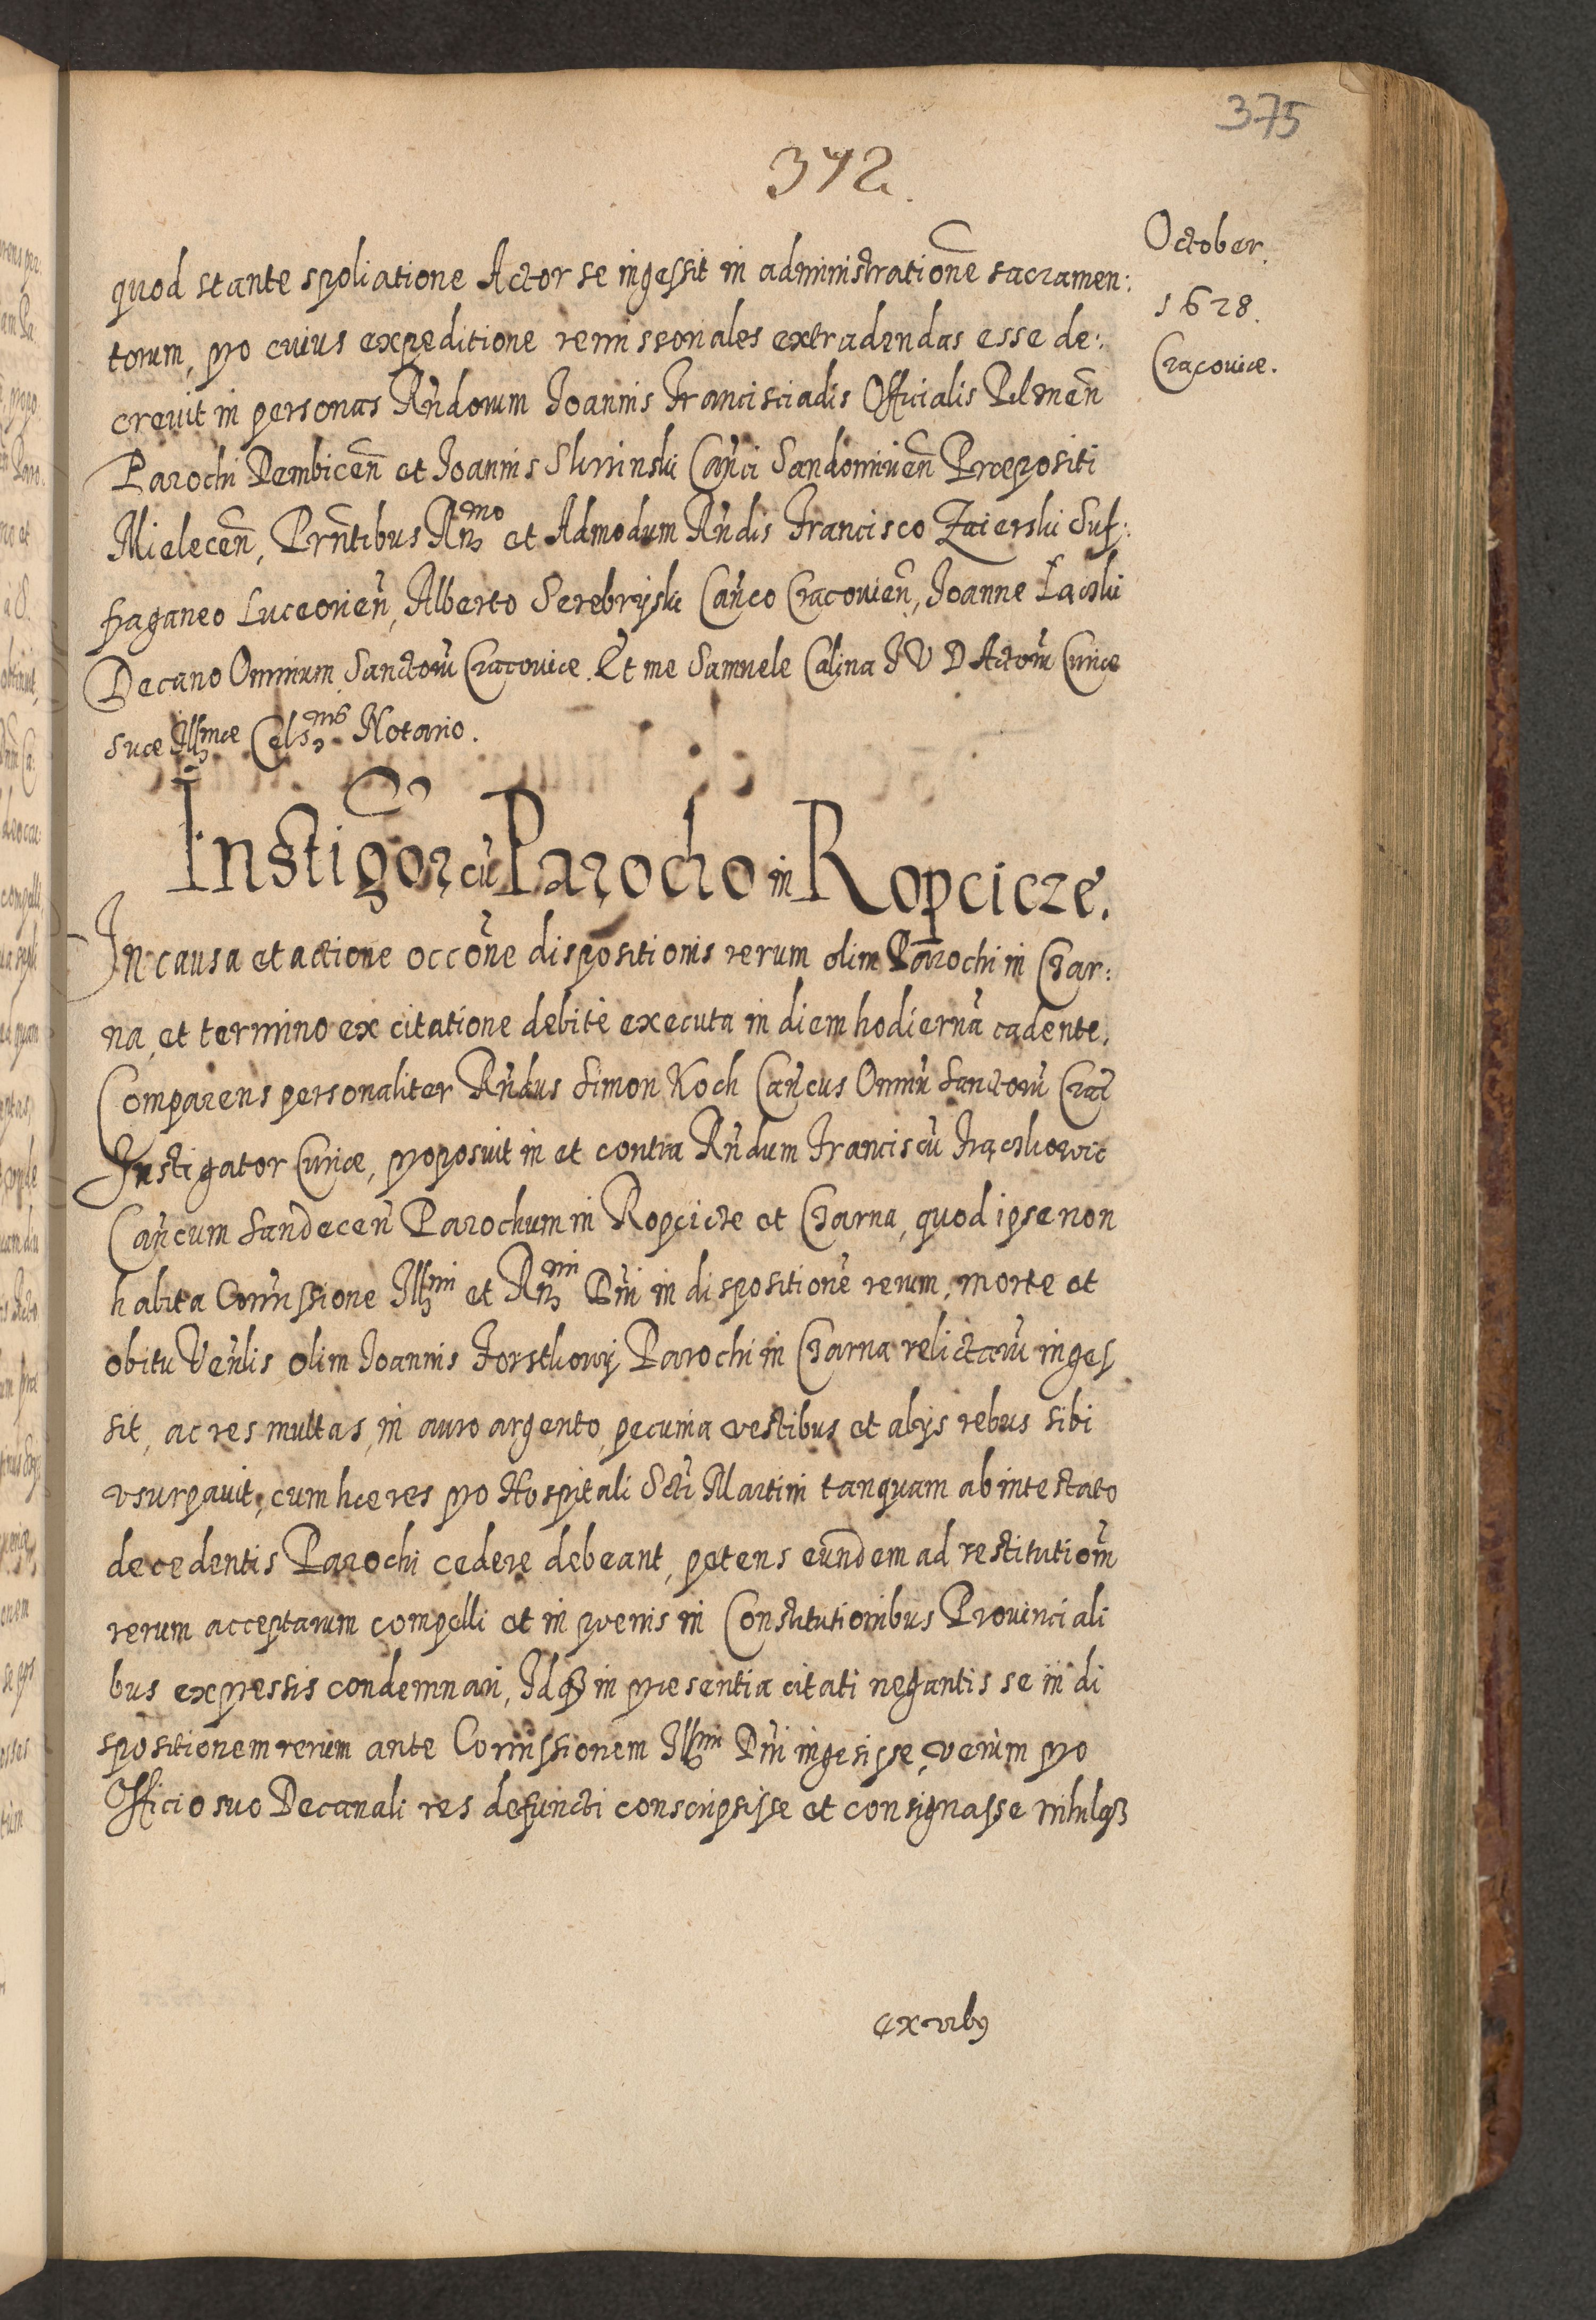 375
372.
October.
1628.
Cracoviæ.
quod stante spoliatione Actor se ingessit in administrationē sacramen:
torum, pro cuius expeditione remissoriales extradendas esse de:
crevit in personas Rñdorum Joannis Francisciadis Officialis Pilznen̄
Parochi Dembicen̄ et Joannis Slminski Cañci Sandomirien̄ Præpositi
Mielecen̄, Prñtibus Rn̄mo et Admodum Rñdis Francisco Zaierski Suf:
fraganeo Luceorien̄, Alberto Serebryski Cañco Cracovien̄, Joanne Łącki
Decano Omnium Sanctorū Cracoviæ. Et me Samuele Calina J V D Actorū Curiæ
suæ Illmæ Celsms Notario.
Instigōr cū Parocho in Ropcicze.
In causa et actione occōne dispositionis rerum olim Parochi in Czar:
na, et termino ex citatione debite executa in diem hodiernā cadente.
Comparens personaliter Rñdus Simon Koch Cañcus Omniū Sanctorū Crac̄
Instigator Curiæ, proposuit in et contra Rñdum Franciscū Frąckowic
Cañcum Sandecen̄ Parochum in Ropcicze et Czarna, quod ipse non
habita Com̄issione Illmi et Rn̄mi Dn̄i in dispositionē rerum, morte et
obitu Ven̄lis olim Joannis Forstkowij Parochi in Czarna relictarū inges
sit, ac res multas, in auro argento, pecunia vestibus et alijs rebus sibi
vsurpavit, cum hæ res pro Hospitali Scti Martini tanquam ab intestato
decedentis Parochi cedere debeant, petens eūndem ad restitutiom̄
rerum acceptarum compelli et in pœnis in Constitutionibus Provinciali
bus expressis condemnari, Idq₃ in præsentia citati negantis se in di
spositionem rerum ante Com̄issionem Illmi Dn̄i ingessisse, verum pro
Officio suo Decanali res defuncti conscripsisse et consignasse nihilq₃